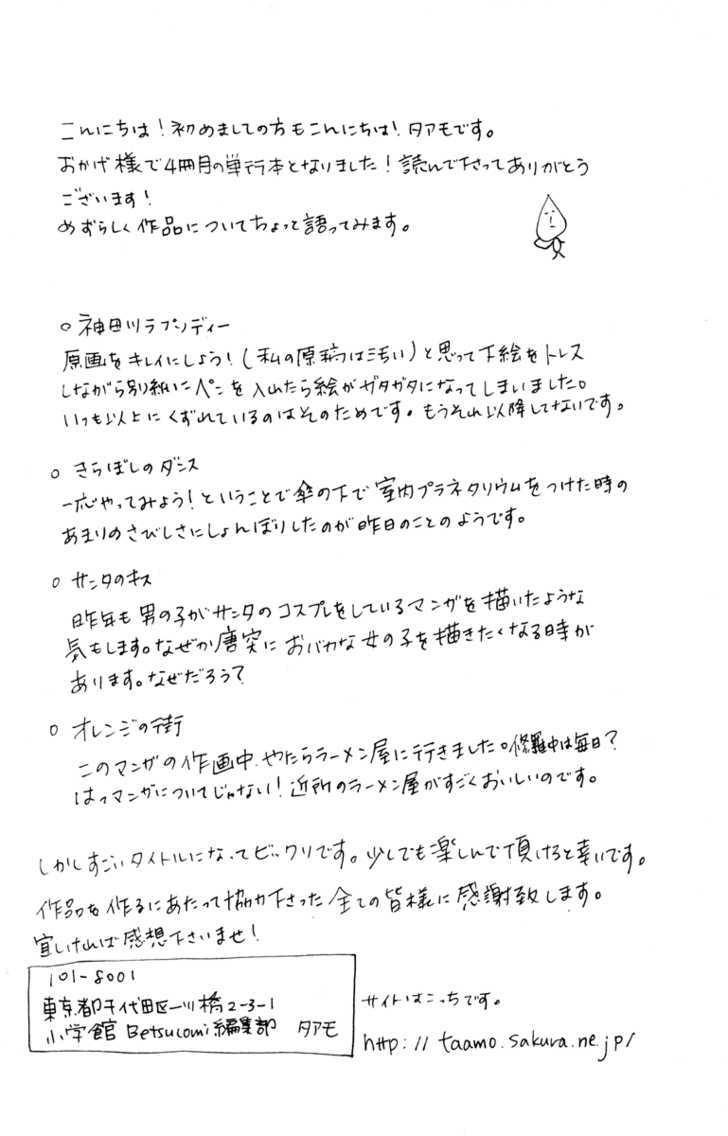 こんにちは！初めましての方もこんにちは！タアモです。
おかげ様で4冊目の単行本となりました！読んで下さってありがとう
ございます！
めずらしく作品についてちょっと語ってみます。
○神田川ラプンディー
原画をキレイにしよう！（私の原稿はきちい）と思って下絵をトレス
しながら別紙にペンを入れたら絵がガタガタになってしまいました。
いつも以上にくずれているのはそのためです。もうそれ以降してないです。
○きらぼしのダンス
一応やってみよう！ということで傘の下で室内プラネタリウムをつけた時の
あまりのさびしさにしょんぼりしたのが昨日のことのようです。
○サンタのキス
昨年も男の子がサンタのコスプレをしているマンガを描いたような
気もします。なぜか唐突におバカな女の子を描きたくなる時が
あります。なぜだろう？
○オレンジの街
このマンガの作画中、やたらラーメン屋に行きました。修羅中は毎日？
はっマンガについてじゃない！近所のラーメン屋がすごくおいしいのです。
しかしすごいタイトルになってビックリです。少しでも楽しんで頂けると幸いです。
作品を作るにあたって協力下さった全ての皆様に感謝致します。
宜しければ感想下さいませ！
101-8001
東京都千代田区一ツ橋2-3-1
小学館 Betsucomi編集部 タアモ
サイトはこっちです。
http://taamo.sakura.ne.jp/